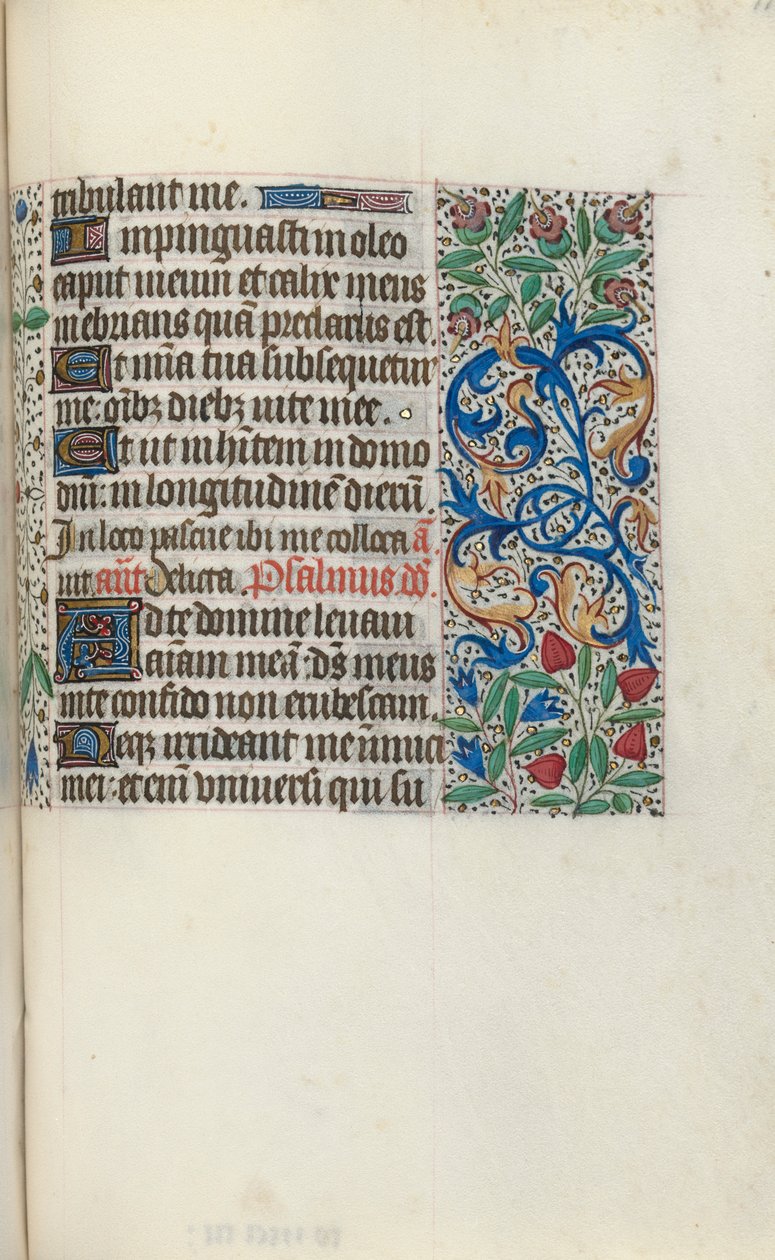 tribulant me.
Impinguasti in oleo
caput meum et calix meus
inebrians quã preclarus est.
Et mĩa tua subsequetur
me: oĩbꝫ diebꝫ vite mee.
Et ut inhĩtem in domo
dñi: in longitudinẽ dierũ.
In loco pascue ibi me collocã ã.
uit añt Delicta. Psalmus dõ.
Ad te domine levavi
aĩam meã: dẽs meus
in te confido non erubescam.
Neqꝫ irrideant me inimici
mei: etenĩ vniversi qui su